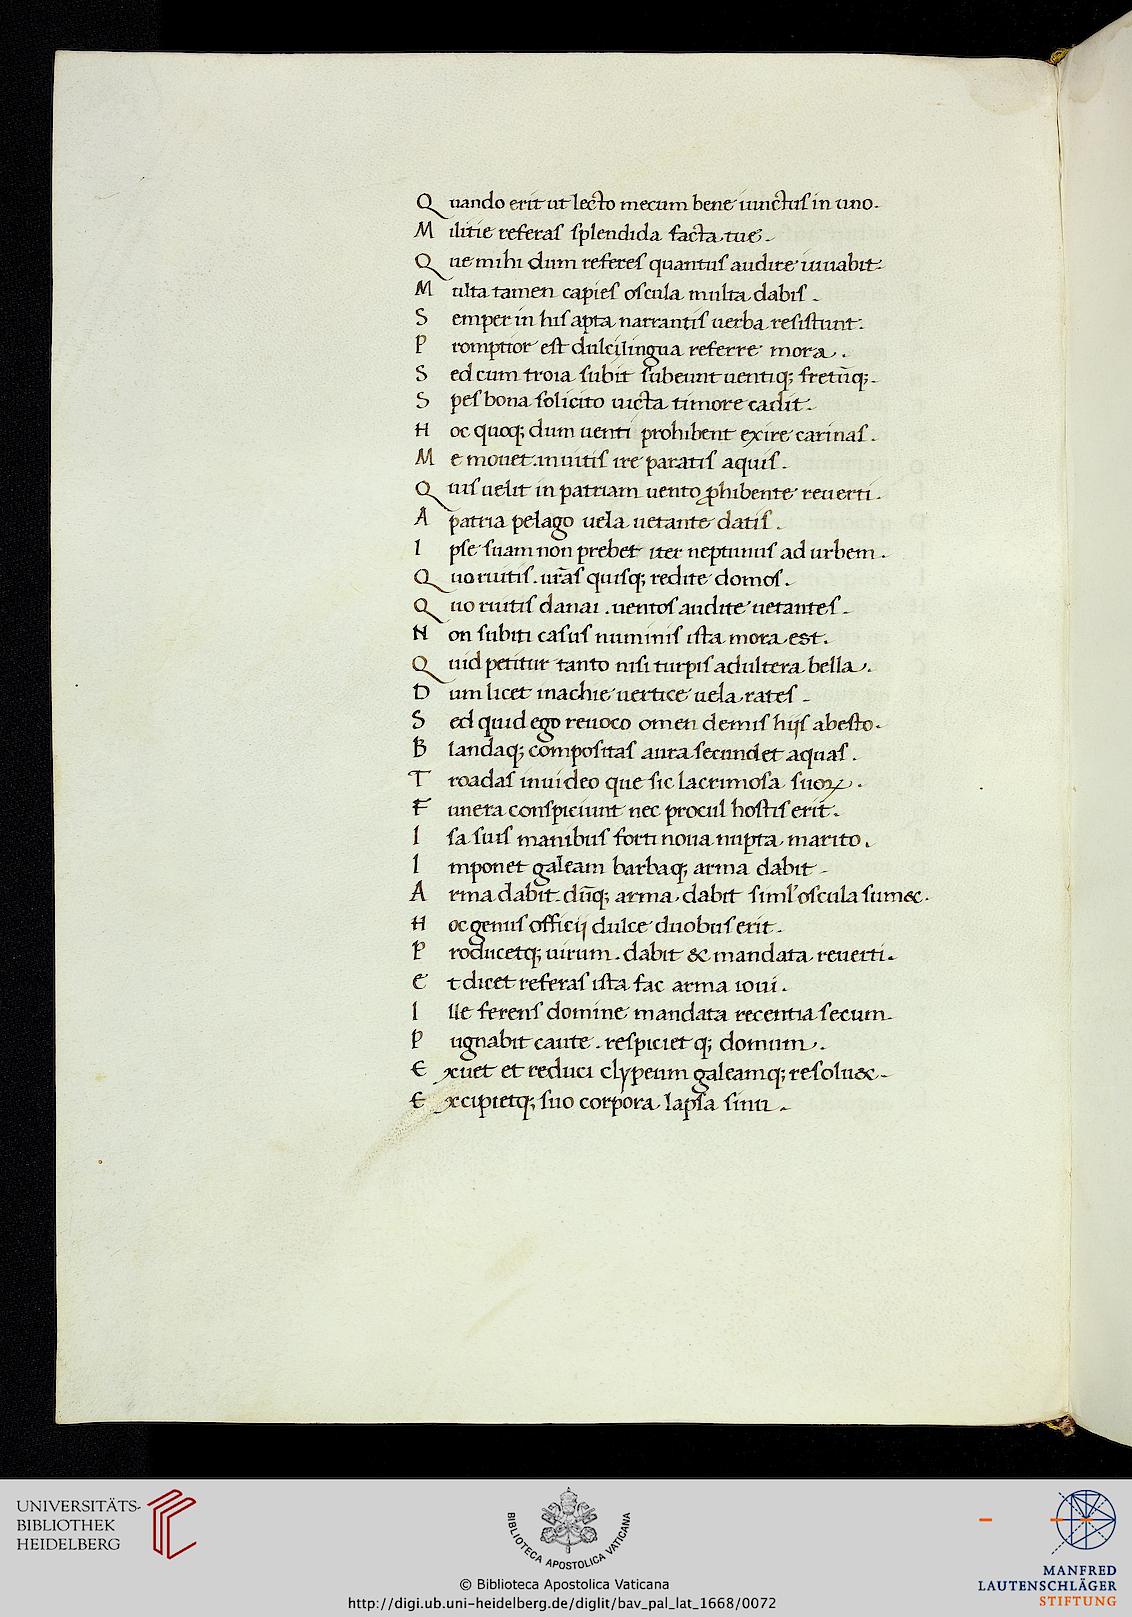 Quando erit ut lecto mecum bene iunctus in uno.
Militie referas splendida facta tue.
Que mihi dum referes quantus audire iuuabit.
Multa tamen capies oscula multa dabis.
Semper in his apta narrantis uerba resistunt.
Promptior est dulci lingua referre mora.
Sed cum troia subit subeunt uentiq; fretūq;.
Spes bona solicito uicta timore cadit.
Hoc quoq; dum uenti prohibent exire carinas.
Me mouet. inuitis ire paratis aquis.
Quis uelit in patriam uento ꝓhibente reuerti.
A patria pelago uela uetante datis.
Ipse suam non prebet iter neptunus ad urbem.
Quo ruitis. ur̄as quisq; redite domos.
Quo ruitis danai. uentos audite uetantes.
Non subiti casus numinis ista mora est.
Quid petitur tanto nisi turpis adultera bella.
Dum licet inachie uertice uela rates.
Sed quid ego reuoco omen demis hijs abesto.
Blandaq; compositas aura secundet aquas.
Troadas inuideo que sic lacrimosa suoꝝ.
Funera conspiciunt nec procul hostis erit.
Isa suis manibus forti noua nupta marito.
Imponet galeam barbaq; arma dabit.
Arma dabit. dūq; arma dabit siml' oscula sum&.
Hoc genus officij dulce duobus erit.
Producetq; uirum. dabit & mandata reuerti.
Et dicet referas ista fac arma ioui.
Ille ferens domine mandata recentia secum.
Pugnabit caute. respiciet q; domum.
Exuet et reduci clypeum galeamq; resolu&.
Excipietq; suo corpora lapsa sinu.
UNIVERSITÄTS-
BIBLIOTHEK
HEIDELBERG
BIBLIOTECA APOSTOLICA VATICANA
© Biblioteca Apostolica Vaticana
http://digi.ub.uni-heidelberg.de/diglit/bav_pal_lat_1668/0072
MANFRED
LAUTENSCHLÄGER
STIFTUNG